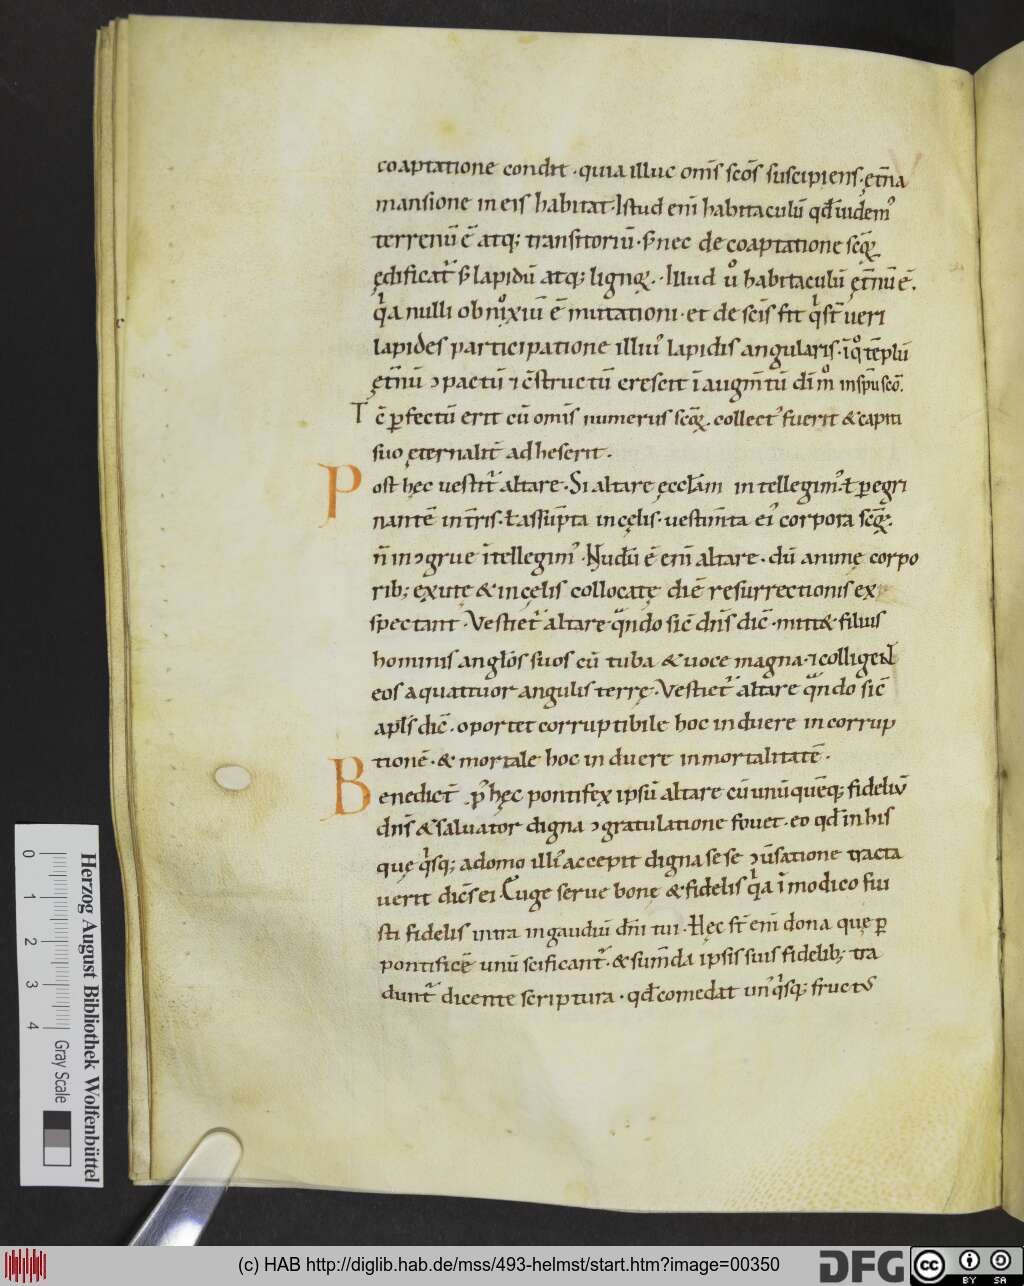 coaptatione condit · quia illuc om̅s sc̅os suscipiens · ęt̅na
mansione in eis habitat · Istud eni̅ habitaculu̅ qđ
terrenu̅ ē atq; transitoriu̅ · nec de coaptatione sc̅oꝝ
ędificat᷑ lapidu̅ atq; lignoꝝ · Illud uͦ habitaculu̅ ęt̅nu̅ ē.
qͥa nulli obnoxiu̅ ē mutationi · et de sc̅is fit qͥ st̅ ueri
lapides participatione illiuꝰ lapidis angularis · i̅ qͦ te̅plu̅
ęt̅nu̅ ɔpactu̅ ⁊ c̅structu̅ crescit i̅ augm̅tu̅ di̅ in sp̅u sc̅o.
T c̅ ꝑfectu̅ erit cu̅ om̅is numerus sc̅oꝝ. collectꝰ fuerit & capiti
suo ęternalit̅ adheserit.
Post hęc uestit᷑ altare · Si altare ęccl̅am intellegimꝰ ł ꝑegri
nante̅ in t̅ris · ł assu̅pta in cęlis · uestim̅ta eiꝰ corpora sc̅oꝝ.
n̅ inɔgrue i̅tellegimꝰ · Nudu̅ ē eni̅ altare · du̅ animę corpo
rib; exutę & in cęlis collocatę die̅ resurrectionis ex
spectant · Vestiet᷑ altare qͣndo sic̅ dn̅s dic̅ · mitt& filius
hominis angl̅os suos cu̅ tuba & uoce magna · ⁊ colligent
eos a quattuor angulis terrę · Vestiet᷑ altare qͣndo sic̅
apl̅s dic̅ · oportet corruptibile hoc induere incorrup
tione̅ · & mortale hoc induere inmortalitate̅.
Benedict̅ pꝰ hęc pontifex ipsu̅ altare cu̅ unu̅que̅q; fideliu̅
dn̅s & saluator digna ɔgratulatione fouet · eo qđ in his
que qͥsq; a domo illiꝰ accepit digna se se ɔu̅satione tracta
uerit dice̅s ei · Euge serue bone & fidelis qͥa i̅ modico fui
sti fidelis intra in gaudiu̅ dn̅i tui · Hęc st̅ eni̅ dona que ꝑ
pontifice̅ unu̅ sc̅ificant᷑ · & sum̅da ipsis suis fidelib; tra
dunt᷑ dicente scriptura · qđ comedat unꝰqͥsq; fructꝰ
Herzog August Bibliothek Wolfenbüttel
0 1 2 3 4 Gray Scale
(c) HAB http://diglib.hab.de/mss/493-helmst/start.htm?image=00350
DFG
cc BY SA